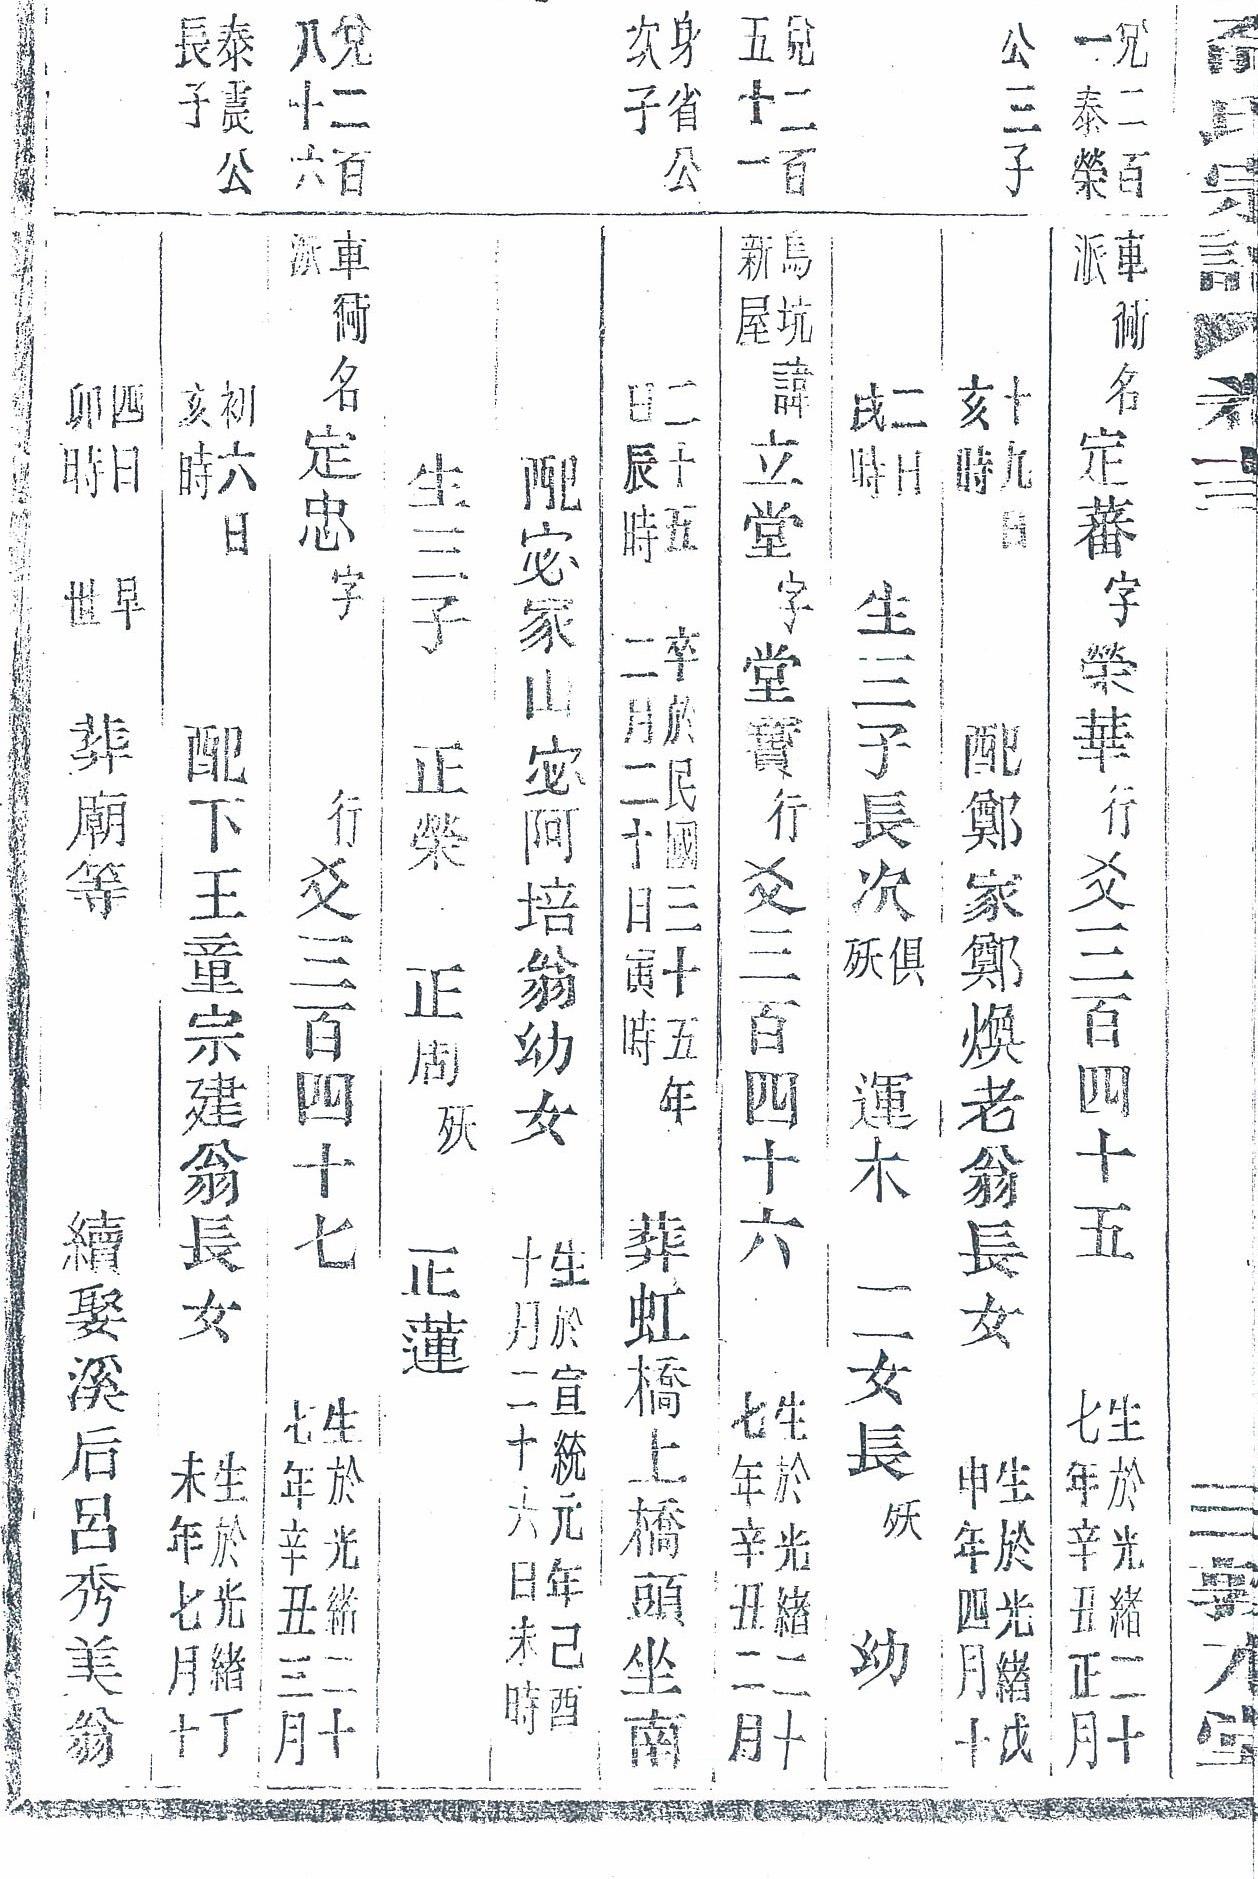 兌二百
一泰榮
公三子
車衕
派
名定蕃字榮華行爻三百四十五
生於光緒二十
七年辛丑正月
十九日
亥時
配鄭家鄭煥老翁長女
生於光緒戊
申年四月十
二日
戌時
生三子長次
俱
殀
運木 二女長
殀
幼
兌二百
五十一
身省公
次子
烏坑
新屋
諱立堂字堂寶行爻三百四十六
生於光緒二十
七年辛丑二月
二十五
日辰時
卒於民國三十五年
二月二十日寅時
葬虹橋上橋頭坐南
配宓家山宓阿培翁幼女
生於宣統元年己酉
十月二十六日未時
生三子 正榮 正周
殀
正蓮
兌二百
八十六
泰震公
長子
車衕
派
名定忠字 行爻三百四十七
生於光緒二十
七年辛丑三月
初六日
亥時
配下王童宗建翁長女
生於光緒丁
未年七月十
四日
卯時
早
世
葬廟等 續娶溪后呂秀美翁